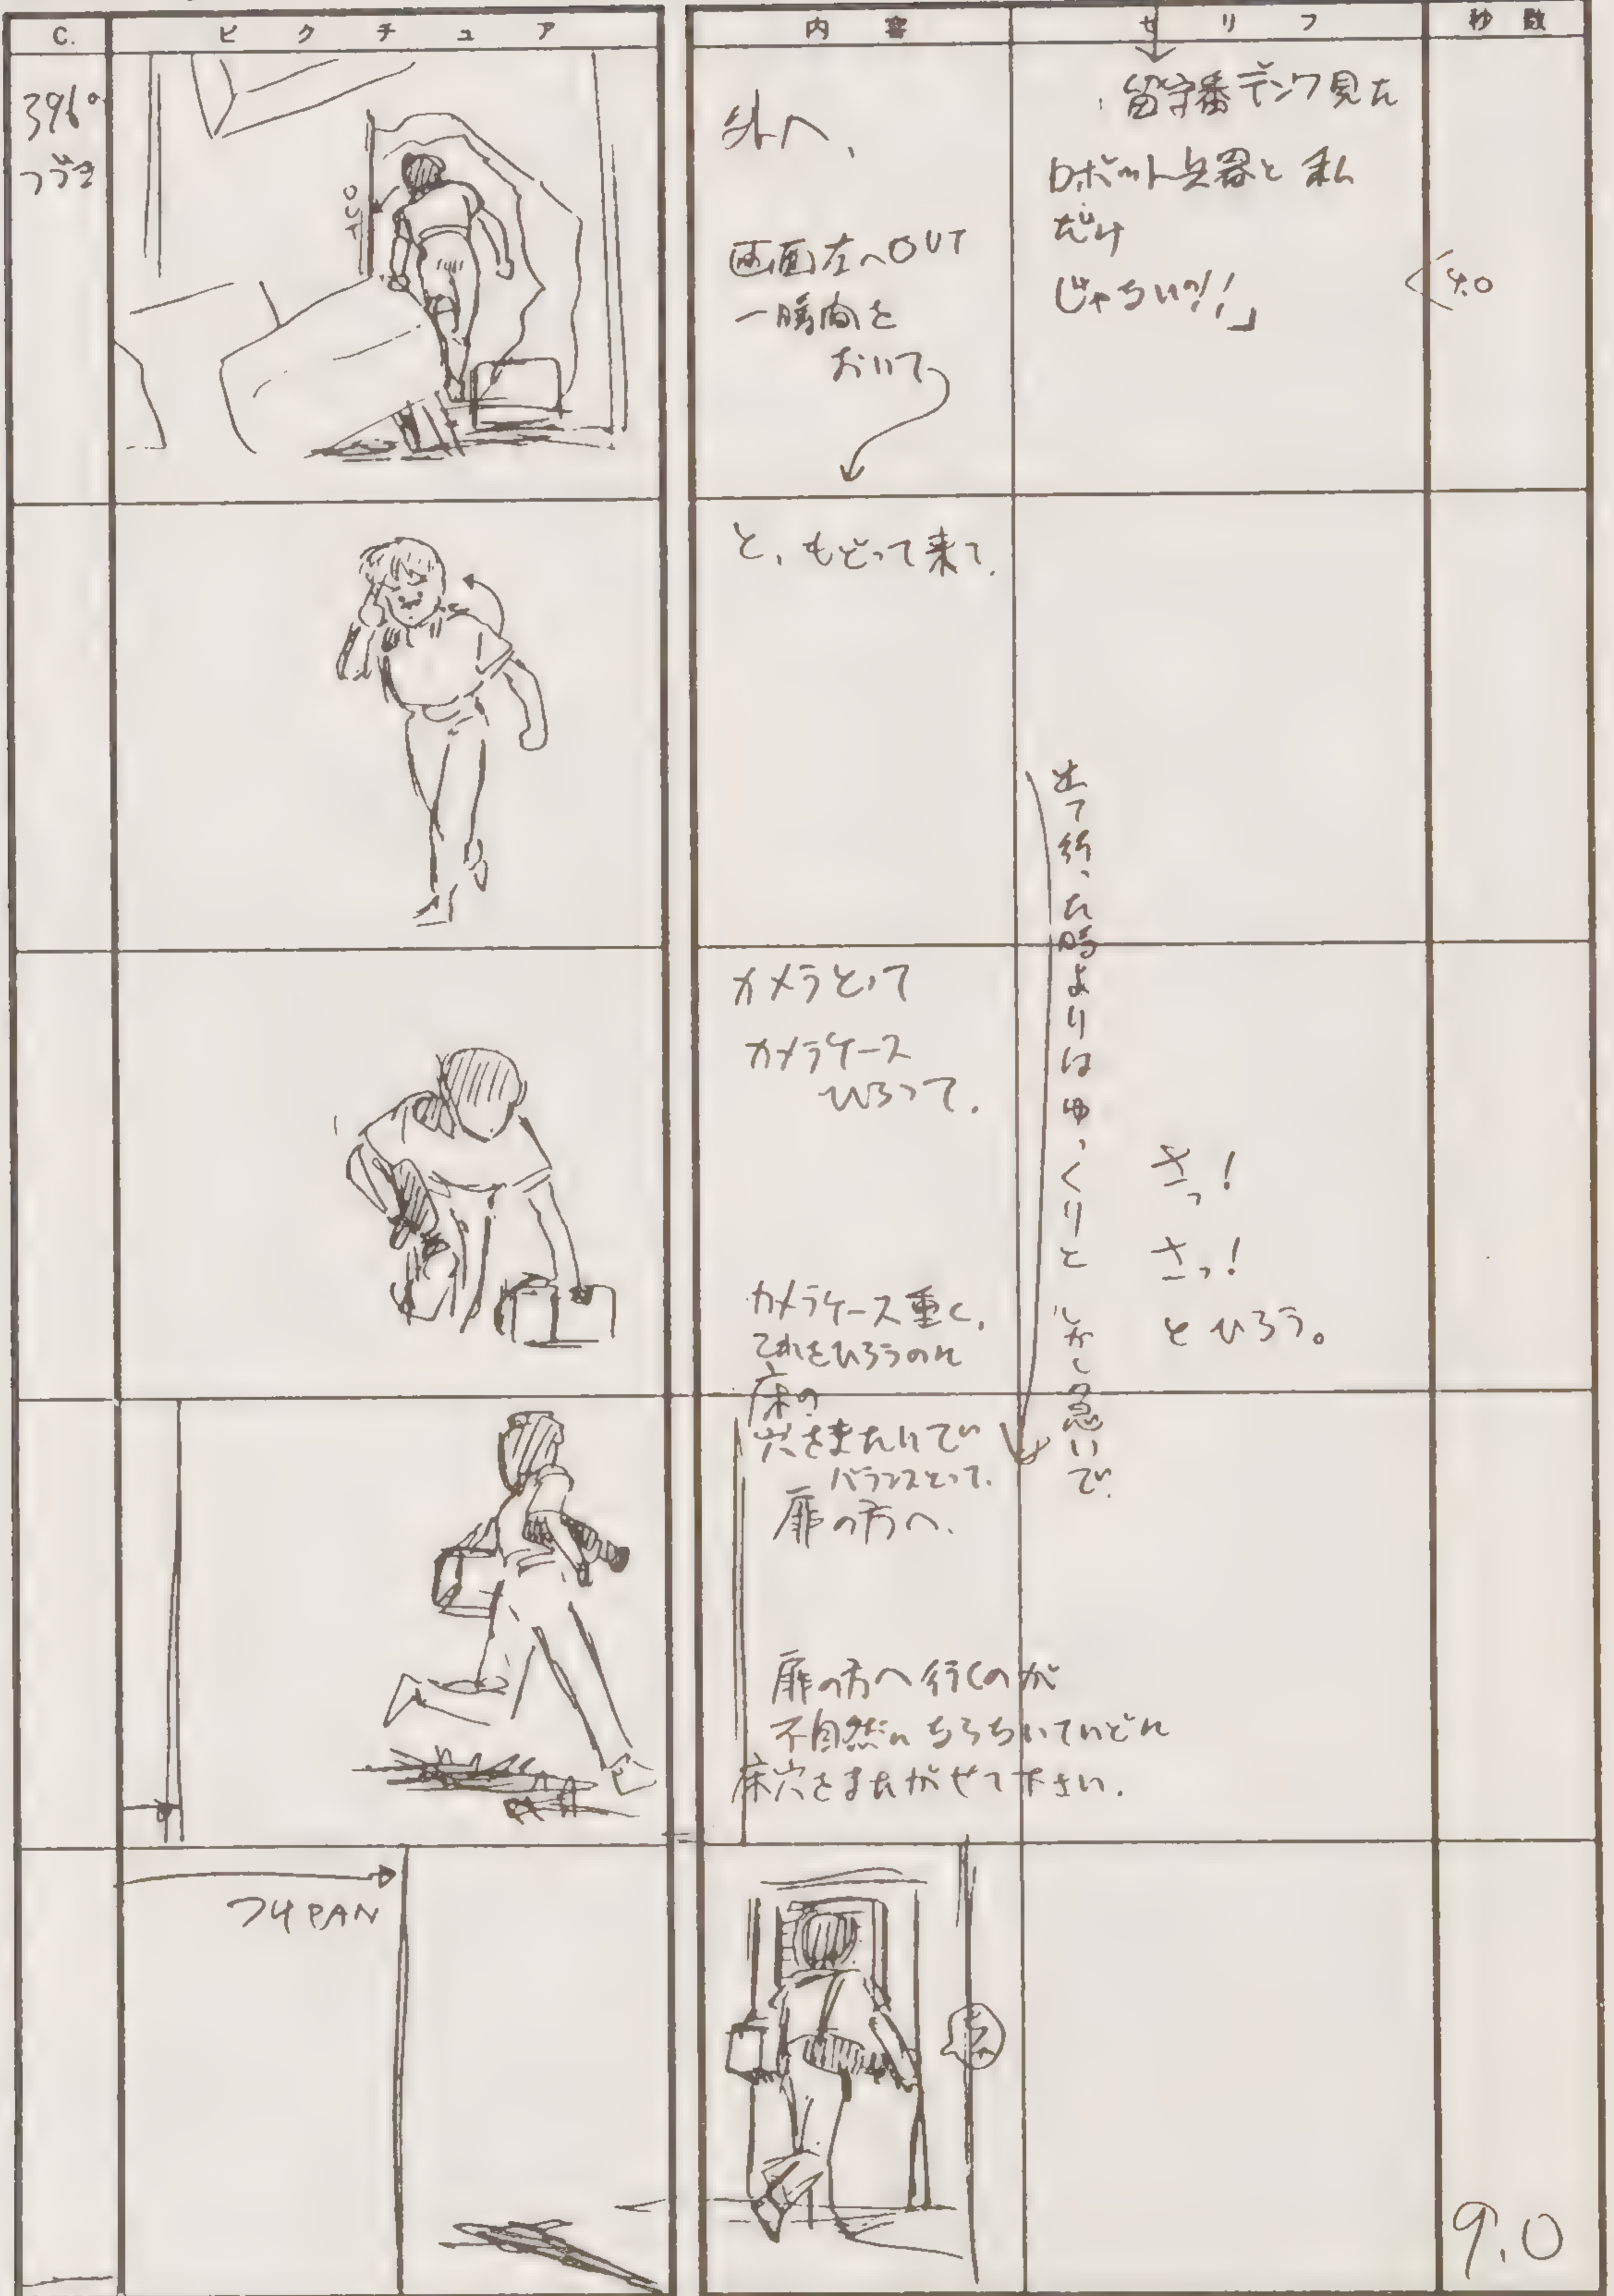 C.
ピクチュア
内容
セリフ
秒数
396
つづき
OUT
外へ、
画面左へOUT
一瞬間を
おいて
留守番デンワ見た
ロボット兵器と私
だけ
じゃないの!!」
4.0
と、もどって来て、
出て行った時よりはゆっくりと しかし急いで
カメラとって
カメラケース
ひろって、
さっ!
さっ!
とひろう。
カメラケース重く、
これをひろうのに
床の
穴をまたいで
バランスとって、
扉の方へ、
扉の方へ行くのが
不自然にならないていどに
床穴をまたがせて下さい。
フォロPAN
9.0